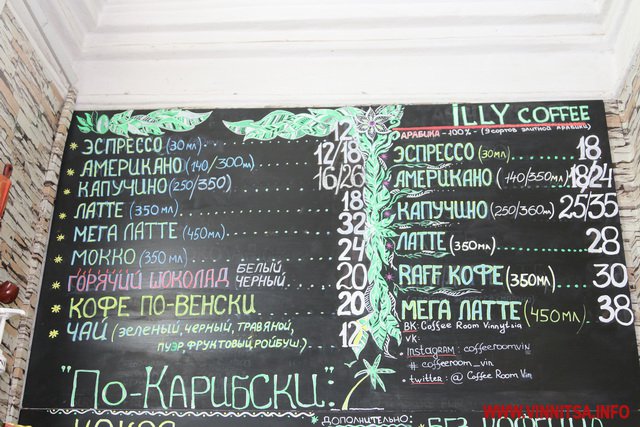 ЭСПРЕССО (30мл) 12
АМЕРИКАНО (140/300мл) 12/18
КАПУЧИНО (250/350) 16/26
ЛАТТЕ (350мл) 18
МЕГА ЛАТТЕ (450мл) 32
МОККО (350мл) 24
ГОРЯЧИЙ ШОКОЛАД БЕЛЫЙ
ЧЕРНЫЙ 20
КОФЕ ПО-ВЕНСКИ 20
ЧАЙ (зеленый, черный, травяной,
пуэр, фруктовый, ройбуш) 12
"ПО-КАРИБСКИ":
ILLY COFFEE
АРАБИКА - 100% - (9 сортов элитной арабики)
ЭСПРЕССО (30мл) 18
АМЕРИКАНО (140/350мл) 18/24
КАПУЧИНО (250/360мл) 25/35
ЛАТТЕ (350мл) 28
RAFF КОФЕ (350мл) 30
МЕГА ЛАТТЕ (450мл) 38
ВК: Coffee Room Vinnytsia
vk:
Instagram: coffeeroomvin
# coffeeroom_vin
twitter: @ Coffee Room Vin
ДОПОЛНИТЕЛЬНО:
WWW.VINNITSA.INFO